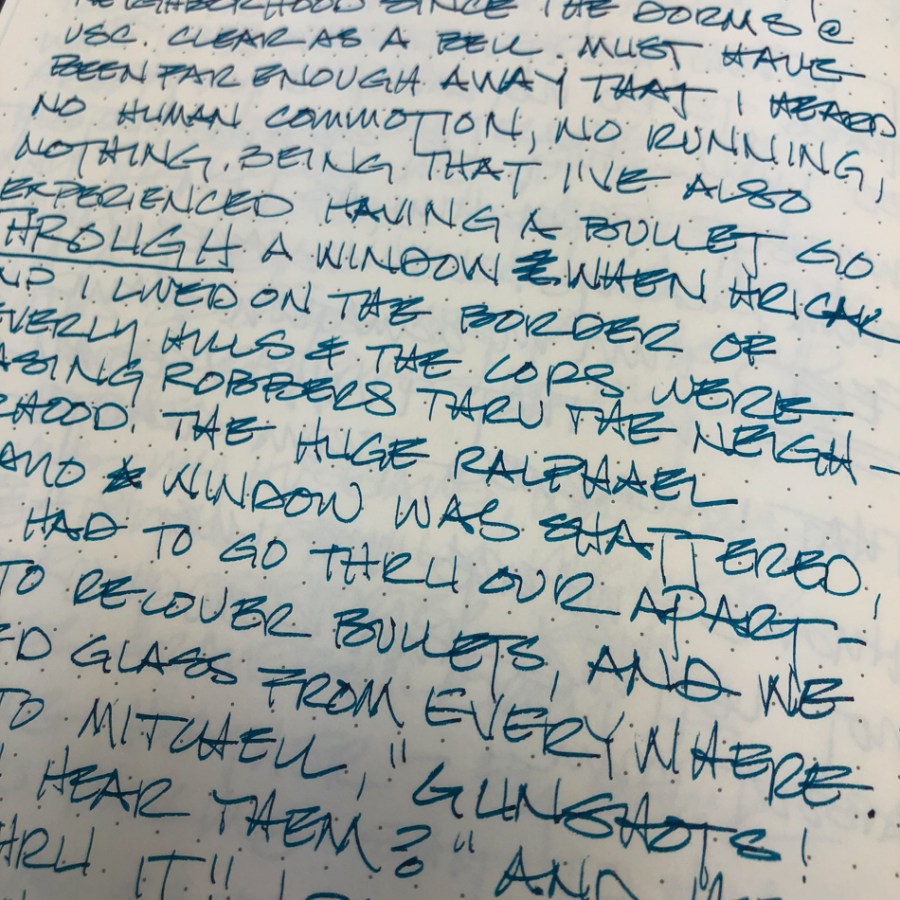 NEIGHBORHOOD SINCE THE DORMS @
USC. CLEAR AS A BELL. MUST HAVE
BEEN FAR ENOUGH AWAY THAT I HEARD
NO HUMAN COMMOTION, NO RUNNING,
NOTHING. BEING THAT I'VE ALSO
EXPERIENCED HAVING A BULLET GO
THROUGH A WINDOW WHEN
ND I LIVED ON THE BORDER OF
EVERLY HILLS & THE COPS WERE
ASING ROBBERS THRU THE NEIGH-
RHOOD. THE HUGE RALPHAEL
AND WINDOW WAS SHATTERED,
HAD TO GO THRU OUR APART-
TO RECOVER BULLETS, AND WE
ED GLASS FROM EVERYWHERE
TO MITCHELL, "GUNSHOTS!
HEAR THEM?" AND
HRU IT!!